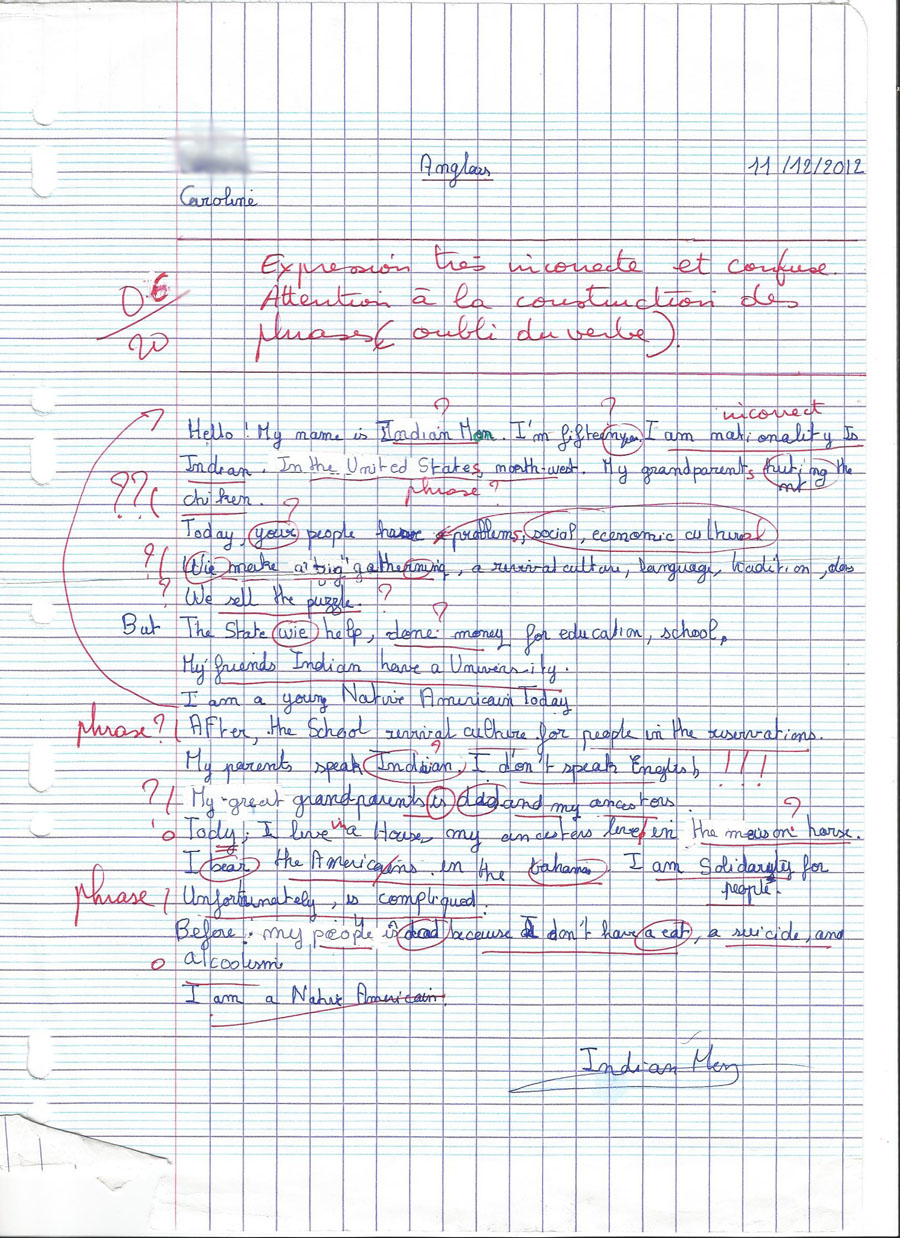 Anglais
11/12/2012
Caroline
Expression très incorrecte et confuse.
Attention à la construction des
phrases (oubli du verbe).
06
20
? ? incorrect
Hello! My name is Indian Man. I'm fifteen I am nationality Is
Indian. In the United States, north-west. My grandparents huting the
??( chiken. phrase?
Today, your people have problems, social, economic cultural
?( Wie make a "big" gathering, a revival culture, language, tradition,
? We sell the puzzle. ?
But The State wie help, done money for education, school,
My friends Indian have a University.
I am a young Native Americain Today
phrase? ( After, the School revival culture for people in the reservations.
My parents speak Indian, I don't speak English !!!
?( My great grandparents is dead and my ancestors.
Tody, I live in a House, my ancestors live in the maison horse.
I bear the Americains in 4 the bahamas. I am Solidarity for
people.
phrase ( Unfortunately, is compliqued.
Before: my people is dead because I don't have a eat, a suicide, and
alcoolism
I am a Native Americain.
Indian Men